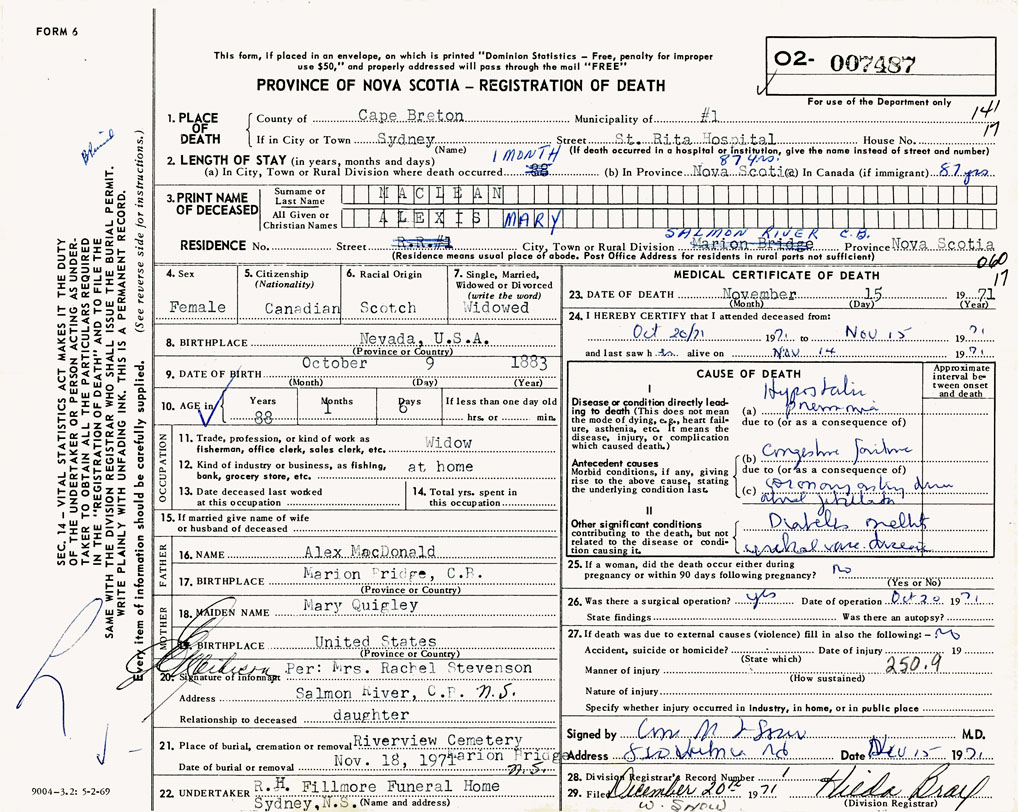 FORM 6
This form, if placed in an envelope, on which is printed "Dominion Statistics – Free, penalty for improper
use $50," and properly addressed will pass through the mail "FREE"
PROVINCE OF NOVA SCOTIA – REGISTRATION OF DEATH
02- 007487
For use of the Department only
141
17
1. PLACE OF DEATH
County of Cape Breton Municipality of #1
If in City or Town Sydney Street St. Rita Hospital House No.
(Name) (If death occurred in a hospital or institution, give the name instead of street and number)
2. LENGTH OF STAY (in years, months and days) 1 MONTH 87 yrs.
(a) In City, Town or Rural Division where death occurred 88 (b) In Province Nova Scotia (c) In Canada (if immigrant) 87 yrs
3. PRINT NAME OF DECEASED
Surname or Last Name MACLEAN
All Given or Christian Names ALEXIS MARY
SALMON RIVER C.B.
RESIDENCE No. Street R.R.#1 City, Town or Rural Division Marion Bridge Province Nova Scotia
(Residence means usual place of abode. Post Office Address for residents in rural parts not sufficient)
060
17
4. Sex
Female
5. Citizenship (Nationality)
Canadian
6. Racial Origin
Scotch
7. Single, Married, Widowed or Divorced (write the word)
Widowed
8. BIRTHPLACE Nevada, U.S.A.
(Province or Country)
9. DATE OF BIRTH October 9 1883
(Month) (Day) (Year)
10. AGE in Years 88 Months 1 Days 6 If less than one day old hrs. or min.
OCCUPATION
11. Trade, profession, or kind of work as fisherman, office clerk, sales clerk, etc. Widow
12. Kind of industry or business, as fishing, bank, grocery store, etc. at home
13. Date deceased last worked at this occupation
14. Total yrs. spent in this occupation
15. If married give name of wife or husband of deceased
FATHER
16. NAME Alex MacDonald
17. BIRTHPLACE Marion Bridge, C.B.
(Province or Country)
MOTHER
18. MAIDEN NAME Mary Quigley
19. BIRTHPLACE United States
(Province or Country)
20. Signature of informant Per: Mrs. Rachel Stevenson
Address Salmon River, C.B. N.S.
Relationship to deceased daughter
21. Place of burial, cremation or removal Riverview Cemetery
Marion Bridge N.S.
Date of burial or removal Nov. 18, 1971
22. UNDERTAKER R.H. Fillmore Funeral Home
Sydney, N.S. (Name and address)
MEDICAL CERTIFICATE OF DEATH
23. DATE OF DEATH November 15 1971
(Month) (Day) (Year)
24. I HEREBY CERTIFY that I attended deceased from:
Oct 20/71 1971 to Nov 15 1971
and last saw her alive on Nov 14 1971
CAUSE OF DEATH
Approximate interval between onset and death
I
Disease or condition directly leading to death (This does not mean the mode of dying, e.g., heart failure, asthenia, etc. It means the disease, injury, or complication which caused death.)
(a) Hypostatic pneumonia
due to (or as a consequence of)
Antecedent causes
Morbid conditions, if any, giving rise to the above cause, stating the underlying condition last.
(b) Congestive failure
due to (or as a consequence of)
(c) coronary artery
II
Other significant conditions contributing to the death, but not related to the disease or condition causing it.
Diabetes
25. If a woman, did the death occur either during pregnancy or within 90 days following pregnancy? no
(Yes or No)
26. Was there a surgical operation? yes Date of operation Oct 20 1971
State findings Was there an autopsy?
27. If death was due to external causes (violence) fill in also the following: – no
Accident, suicide or homicide? Date of injury 19
(State which)
Manner of injury 250.9
(How sustained)
Nature of injury
Specify whether injury occurred in industry, in home, or in public place
Signed by M.D.
Address Date Nov 15 1971
28. Division Registrar's Record Number 1
29. Filed December 20th 1971 Hilda Bray
W. SNOW (Division Registrar)
SEC. 14 – VITAL STATISTICS ACT MAKES IT THE DUTY
OF THE UNDERTAKER OR PERSON ACTING AS UNDER-
TAKER TO OBTAIN ALL THE PARTICULARS REQUIRED
IN THE "REGISTRATION OF DEATH" AND TO FILE THE
SAME WITH THE DIVISION REGISTRAR WHO SHALL ISSUE THE BURIAL PERMIT.
WRITE PLAINLY WITH UNFADING INK. THIS IS A PERMANENT RECORD.
Every item of information should be carefully supplied. (See reverse side for instructions.)
9004–3.2: 5-2-69